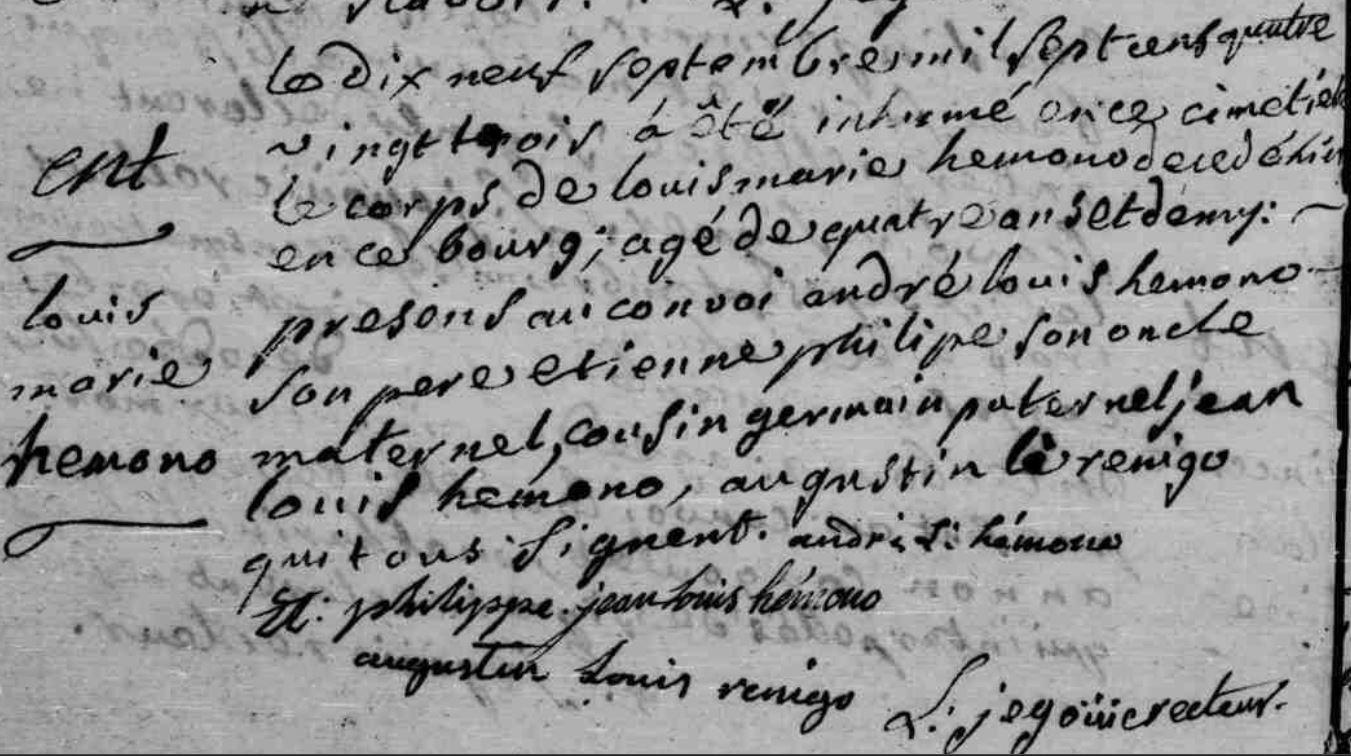 ent
louis
marie
hemono
le dix neuf septembre mil sept cens quatre
vingt trois á été inhumé en ce cimetiér
le corps de louis marie hemono decedé hier
en ce bourg; agé de quatre ans et demy:
presens au convoi andré louis hemono
son pere etienne philipe son oncle
maternel, cousin germain paternel jean
louis hemono, augustin le renigo
qui tous signent. andré L: hémono
Et: philippe. jean louis hémono
augustin Louis renigo
L: jegoüic recteur.